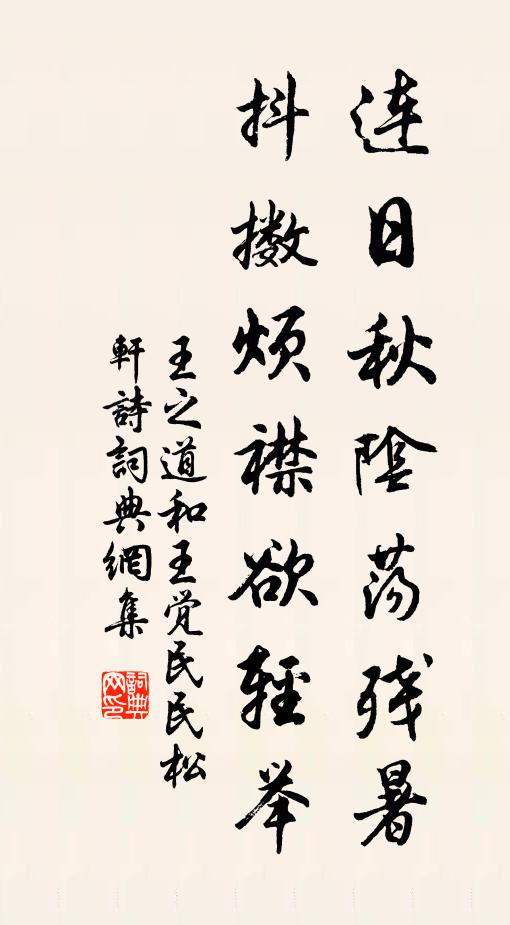 连日秋陰荡残暑
抖擞烦襟欲輕举
王之道和王觉民民松
軒詩詞典網集
詞典
网印